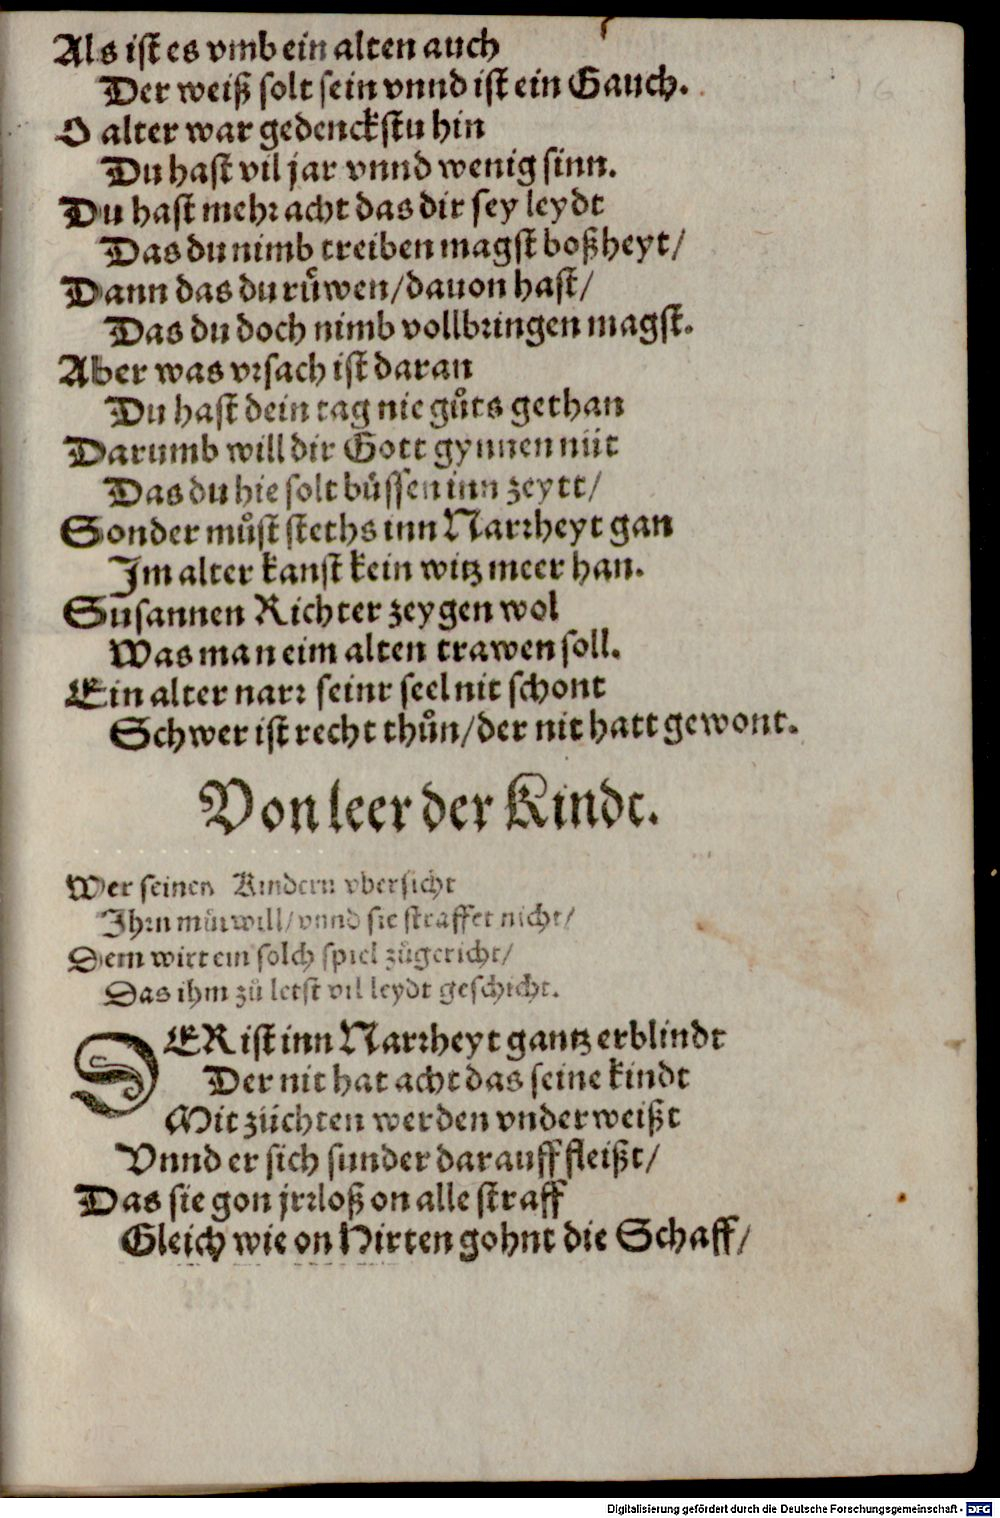 Als ist es vmb ein alten auch
Der weiß solt sein vnnd ist ein Gauch.
O alter war gedenckstu hin
Du hast vil jar vnnd wenig sinn.
Du hast mehr acht das dir sey leydt
Das du nimb treiben magst boßheyt/
Dann das du ruͤwen/dauon hast/
Das du doch nimb vollbringen magst.
Aber was vrsach ist daran
Du hast dein tag nie guͦts gethan
Darumb will dir Gott gynnen nüt
Das du hie solt buͤssen inn zeytt/
Sonder muͦst steths inn Narrheyt gan
Im alter kanst kein witz meer han.
Susannen Richter zeygen wol
Was man eim alten trawen soll.
Ein alter narr seinr seel nit schont
Schwer ist recht thuͦn/der nit hatt gewont.
Von leer der Kindt.
Wer seinen Kindern vbersicht
Ihrn muͦtwill/vnnd sie straffet nicht/
Dem wirt ein solch spiel zuͦgericht/
Das ihm zuͦ letst vil leydt geschicht.
DER ist inn Narrheyt gantz erblindt
Der nit hat acht das seine kindt
Mit züchten werden vnderweißt
Vnnd er sich sunder darauff fleißt/
Das sie gon jrrloß on alle straff
Gleich wie on Hirten gohnt die Schaff/
Digitalisierung gefördert durch die Deutsche Forschungsgemeinschaft - DFG